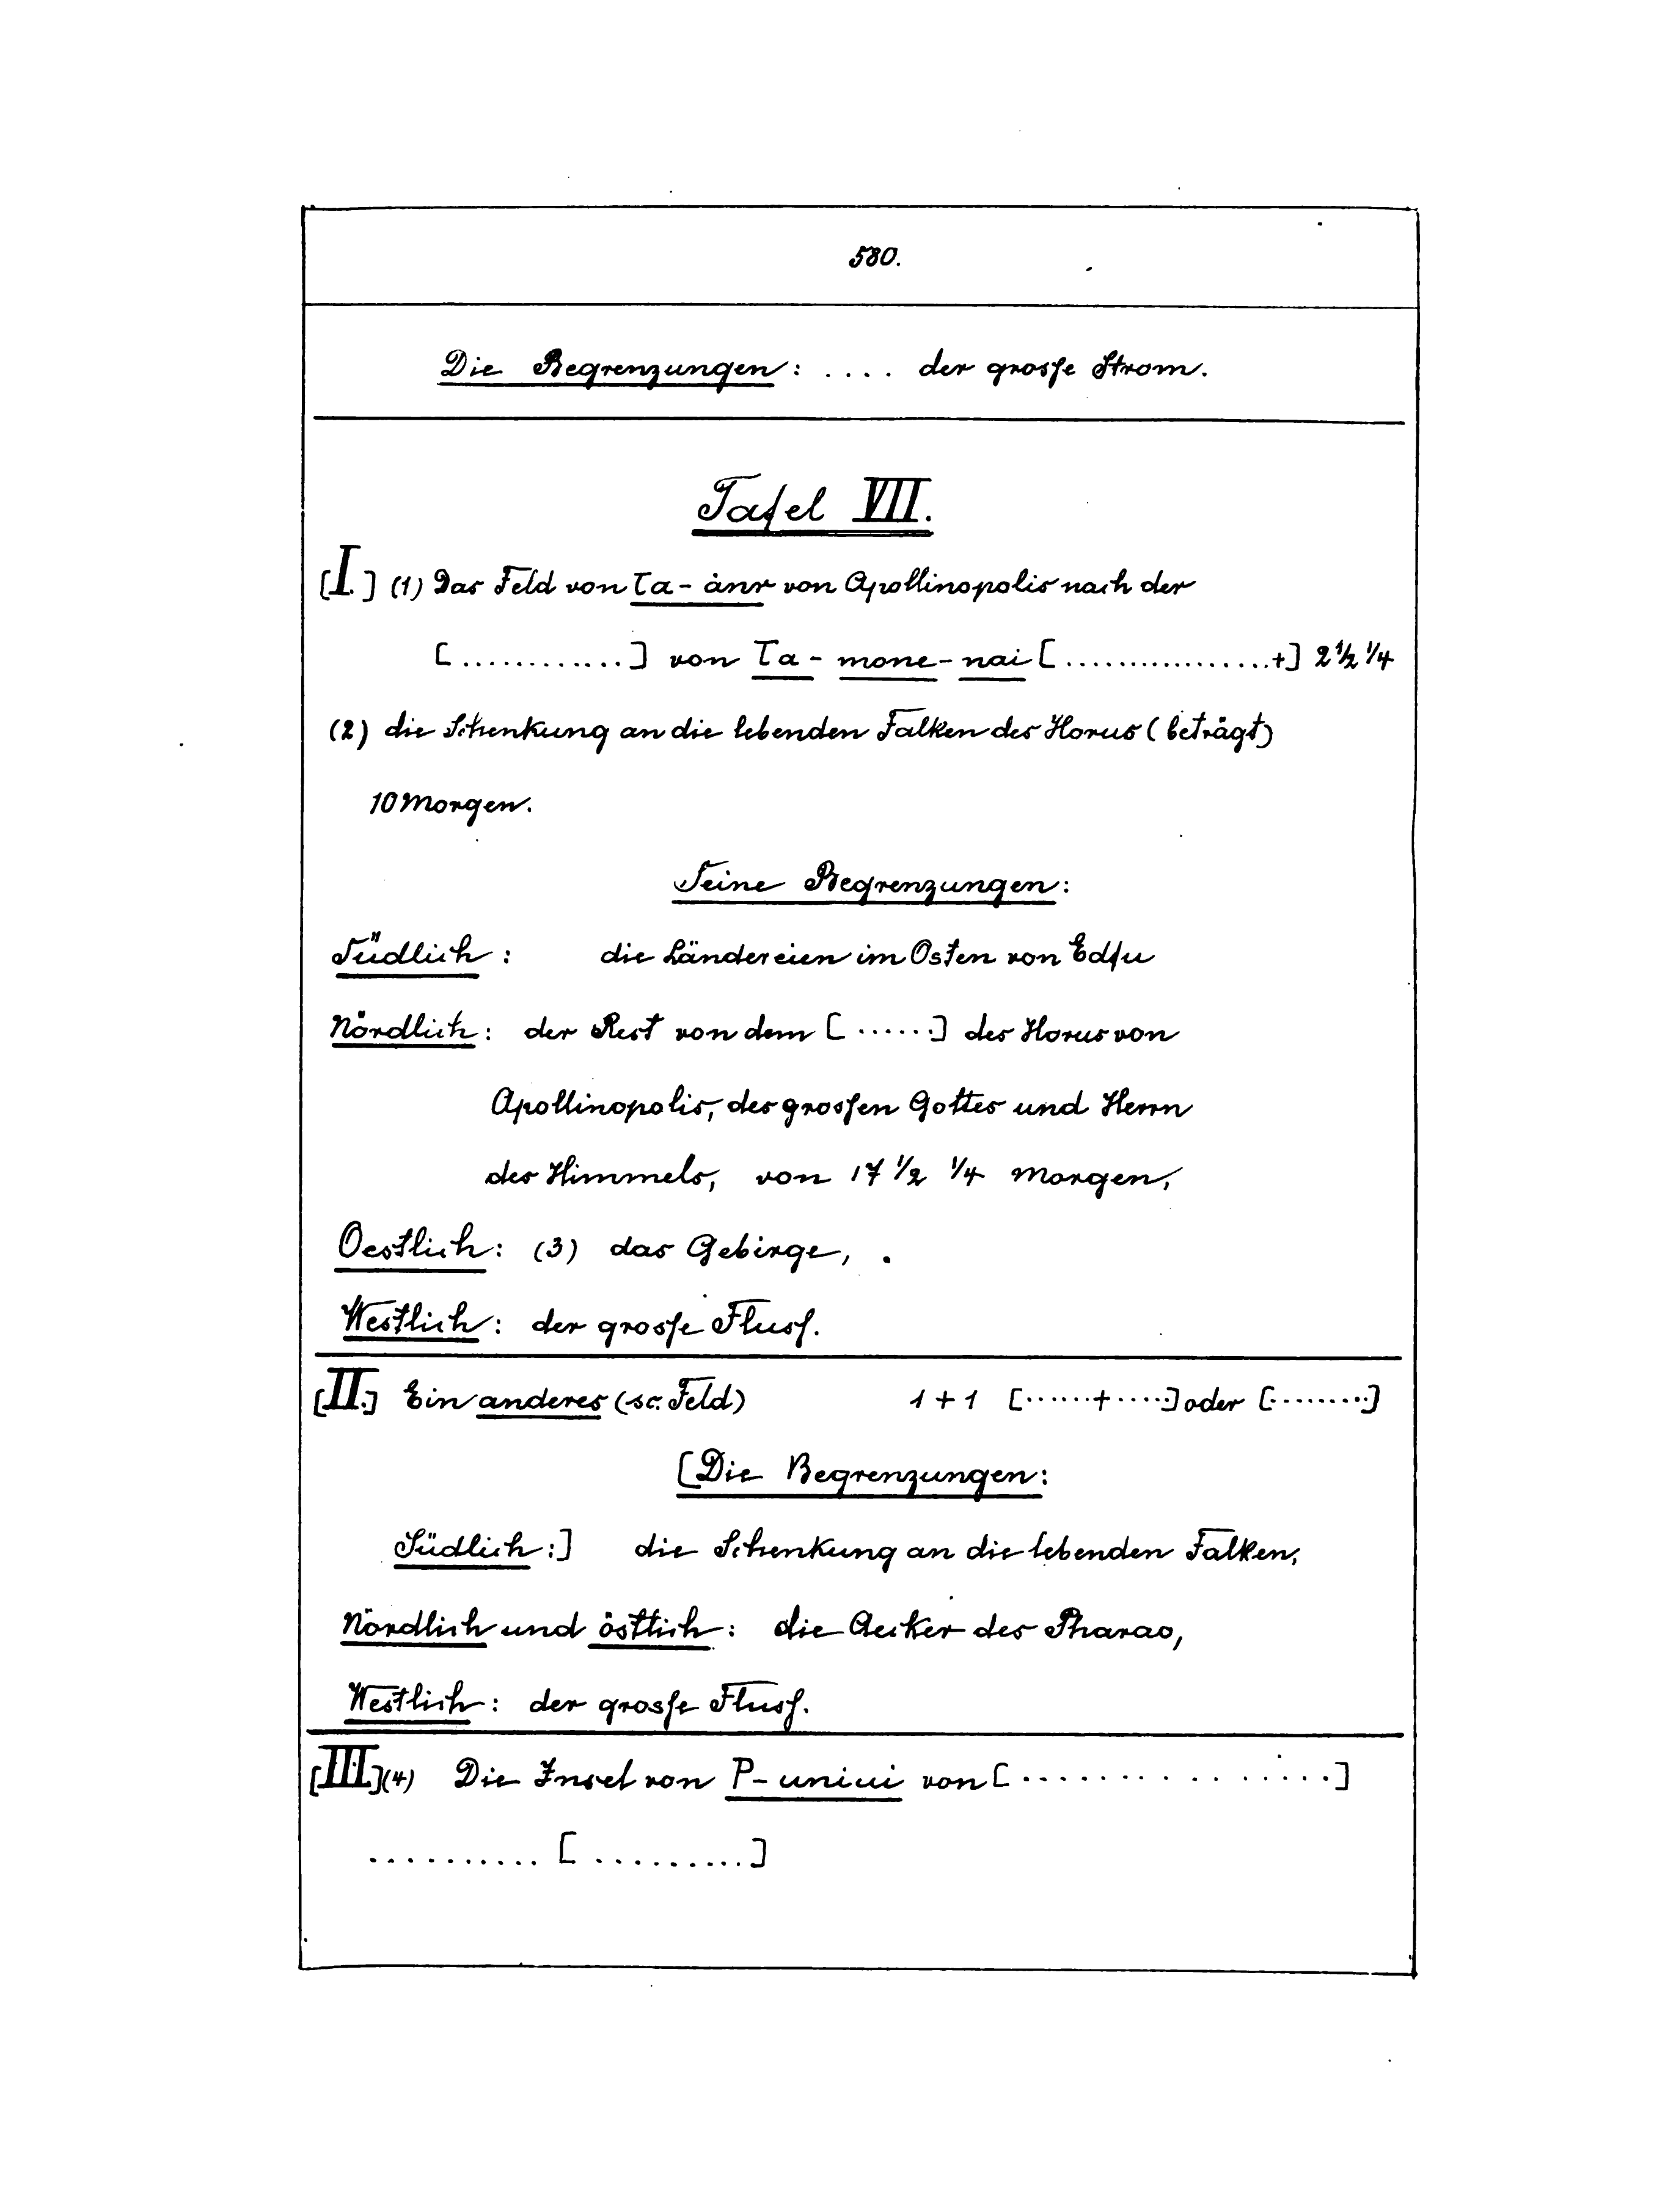 580.
Die Begrenzungen: .... der grosse Strom.
Tafel VII.
[I.] (1) Das Feld von Ta-ȧnr von Apollinopolis nach der
[............] von Ta-mone-nai [................+] 2 ½ ¼
(2) die Schenkung an die lebenden Falken des Horus (beträgt)
10 Morgen.
Seine Begrenzungen:
Südlich: die Ländereien im Osten von Edfu
Nördlich: der Rest von dem [......] des Horus von
Apollinopolis, des grossen Gottes und Herrn
des Himmels, von 17 ½ ¼ Morgen,
Oestlich: (3) das Gebirge,
Westlich: der grosse Fluss.
[II.] Ein anderes (sc. Feld) 1+1 [......+.....] oder [.........]
[Die Begrenzungen:
Südlich:] die Schenkung an die lebenden Falken,
Nördlich und östlich: die Aecker des Pharao,
Westlich: der grosse Fluss.
[III.] (4) Die Insel von P-uniui von [...............]
.......... [..........]